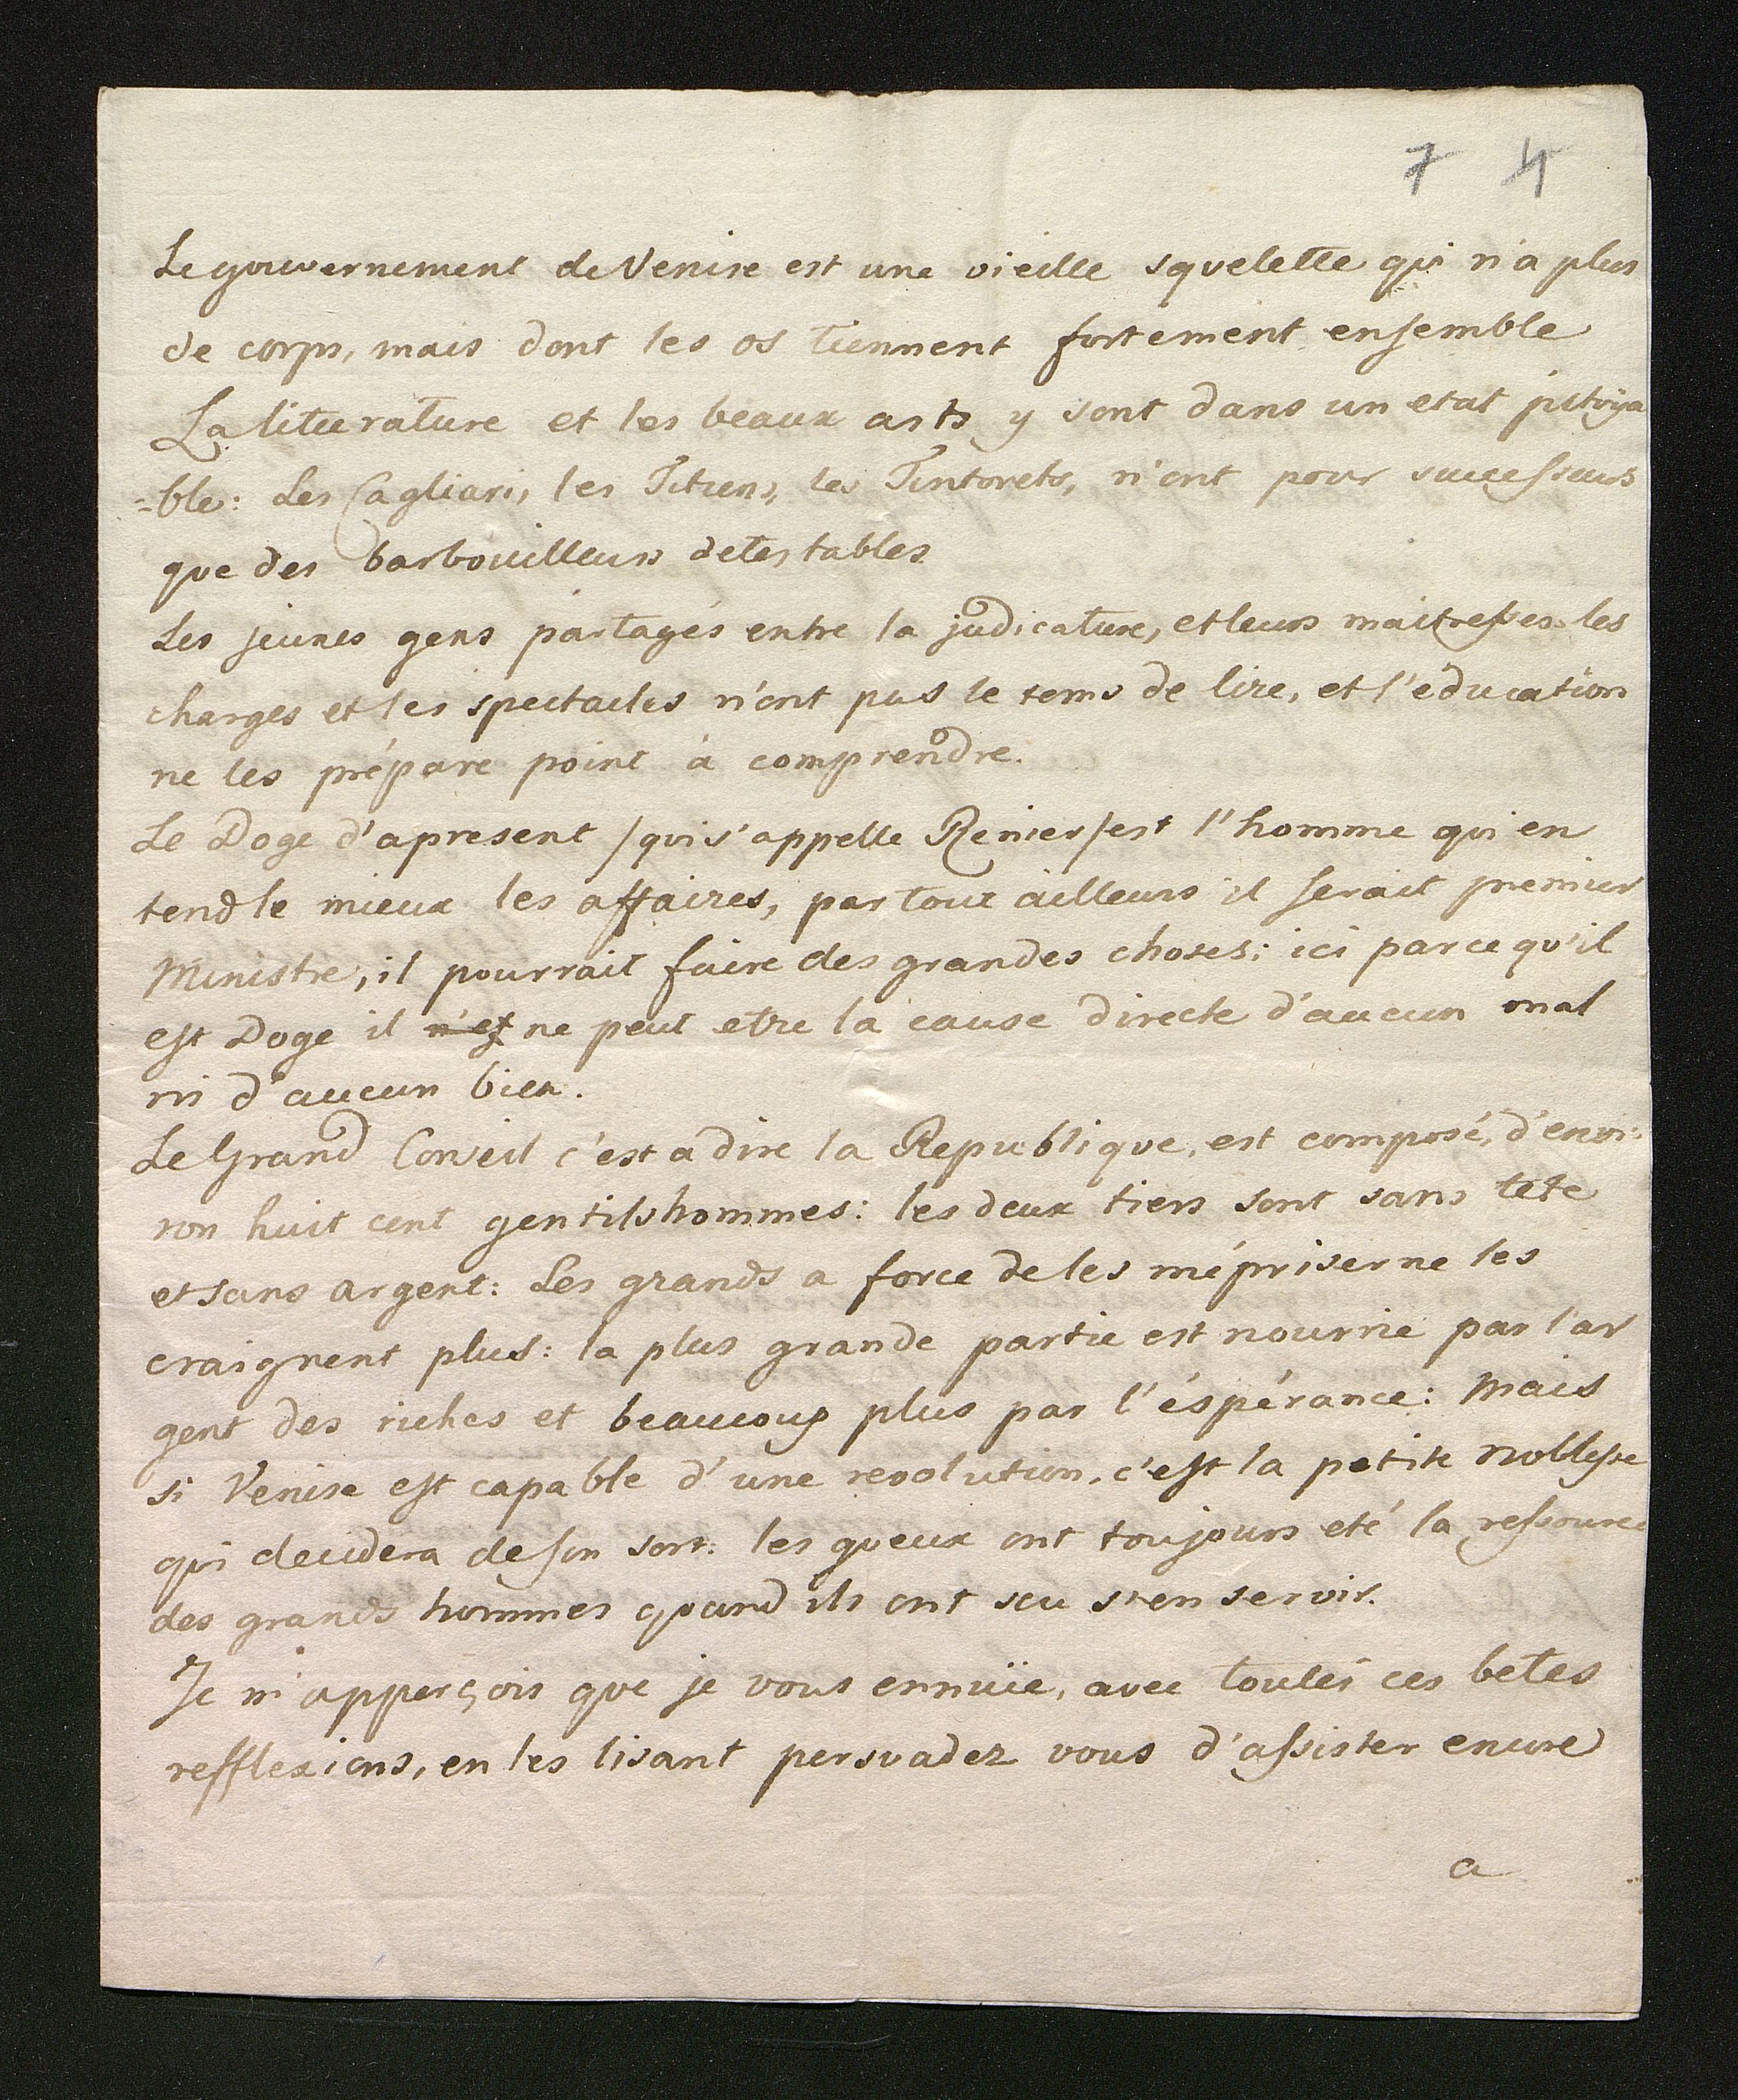 7 4
Le gouvernement de Venise est une vieille squelette qui n'a plus
de corps, mais dont les os tiennent fortement ensemble
La litterature et les beaux arts y sont dans un etat pitoya
=ble: Les Cagliari, les Titiens, les Tintorets, n'ont pour successeurs
que des barbouilleurs detestables
Les jeunes gens partagés entre la judicature, et leurs maitresses les
charges et les spectacles n'ont pas le tems de lire, et l'education
ne les prépare point à comprendre.
Le Doge d'apresent /qui s'appelle Renier/ est l'homme qui en
tend le mieux les affaires, par tout ailleurs il serait premier
Ministre, il pourrait faire des grandes choses; ici parce qu'il
est Doge il n'est ne peut etre la cause directe d'aucun mal
ni d'aucun bien.
Le Grand Conseil c'est a dire la Republique, est composé, d'envi:
ron huit cent gentilshommes: les deux tiers sont sans tete
et sans argent: Les grands a force de les mépriser ne les
craignent plus: la plus grande partie est nourrie par l'ar
gent des riches et beaucoup plus par l'éspérance: Mais
si Venise est capable d'une revolution, c'est la petite Noblesse
qui decidera de son sort: les gueux ont toujours eté la ressource
des grands hommes quand ils ont scu s'en servir.
Je m'apperçois que je vous ennuïe, avec toutes ces betes
refflexions, en les lisant persuadez vous d'assister encore
a